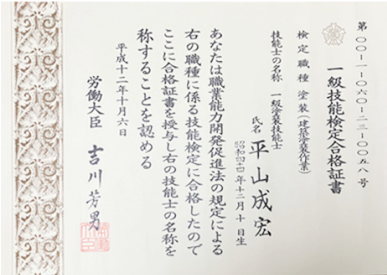 第〇〇-一-〇六〇-二三-〇〇五八号
一級技能検定合格証書
検定職種 塗装(建築塗装作業)
技能士の名称 一級塗装技能士
氏名 平山成宏
昭和四十四年十二月十日生
あなたは職業能力開発促進法の規定による
右の職種に係る技能検定に合格したので
ここに合格証書を授与し右の技能士の名称を
称することを認める
平成十二年十月六日
労働大臣 吉川芳男